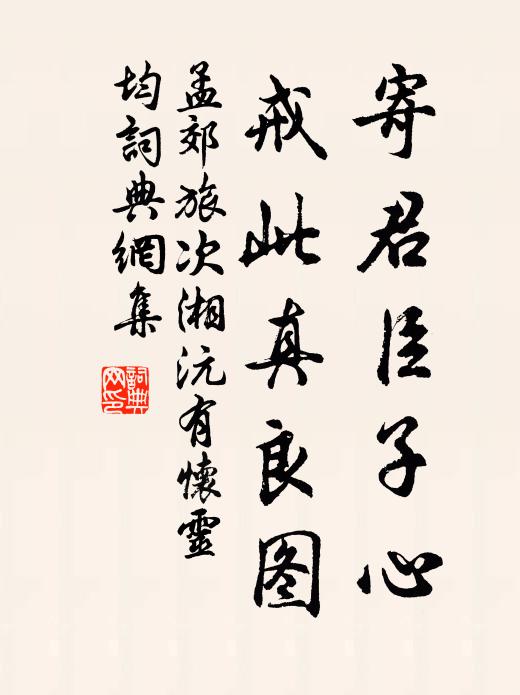 寄君臣子心
戒此真良图
孟郊旅次湘沅有懷靈
均詞典網集
詞典
网印